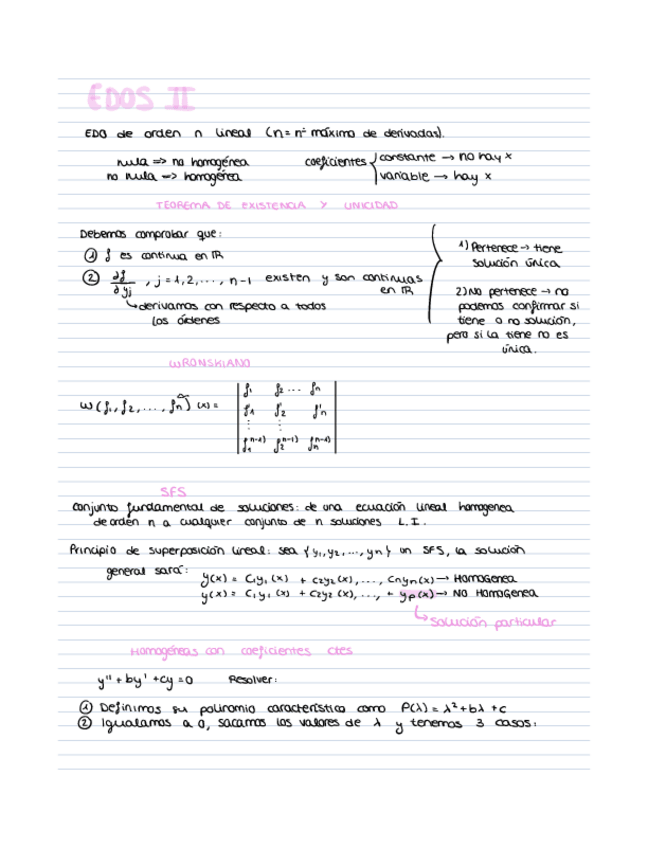 EDOS II
EDO de orden n lineal (n = nº máximo de derivadas).
nula => no homogénea
no nula => homogénea
coeficientes { constante → no hay x
variable → hay x
TEOREMA DE EXISTENCIA Y UNICIDAD
Debemos comprobar que:
① f es continua en IR
② ∂f/∂yj , j = 1, 2, ..., n-1 existen y son continuas en IR
↳ derivamos con respecto a todos
los órdenes
1) Pertenece → tiene
solución única
2) No pertenece → no
podemos confirmar si
tiene o no solución,
pero si la tiene no es
única.
WRONSKIANO
W (f1, f2, ..., fn) (x) =
f1 f2 ... fn
f'1 f'2 f'n
⋮ ⋮
f1^(n-1) f2^(n-1) fn^(n-1)
SFS
Conjunto fundamental de soluciones: de una ecuación lineal homogenea
de orden n a cualquier conjunto de n soluciones L.I.
Principio de superposición lineal: sea {y1, y2, ..., yn} un SFS, la solución
general sará:
y(x) = C1y1(x) + C2y2(x), ..., Cnyn(x) → Homogenea
y(x) = C1y1(x) + C2y2(x), ..., + yp(x) → No Homogenea
↳ solución particular
Homogéneas con coeficientes ctes
y'' + by' + cy = 0 Resolver:
① Definimos su polinomio característico como P(λ) = λ² + bλ + c
② Igualamos a 0, sacamos los valores de λ y tenemos 3 casos: